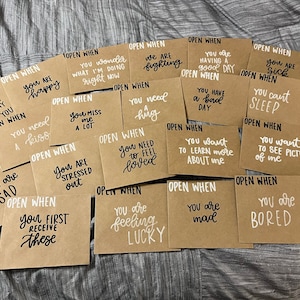 OPEN WHEN
you are
happy
OPEN WHEN
you wonder
WHAT I'M DOING
right now
OPEN WHEN
we ARE
fighting
OPEN WHEN
you are
HAVING A
good DAY
OPEN WHEN
you are
SICK
you need
a
OPEN WHEN
you miss
me
A LOT
OPEN WHEN
you need
a
hug
YOU HAVE
a bad
DAY
OPEN WHEN
you can't
SLEEP
SAD
OPEN WHEN
you ARE
STRESSED
out
OPEN WHEN
you NEED
TO FEEL
loved
OPEN WHEN
you want
TO LEARN more
ABOUT ME
OPEN WHEN
you want
TO SEE
of me
OPEN WHEN
you FIRST
RECEIVE
these
OPEN WHEN
you are
feeling
LUCKY
OPEN WHEN
you are
mad
OPEN WHEN
you are
BORED